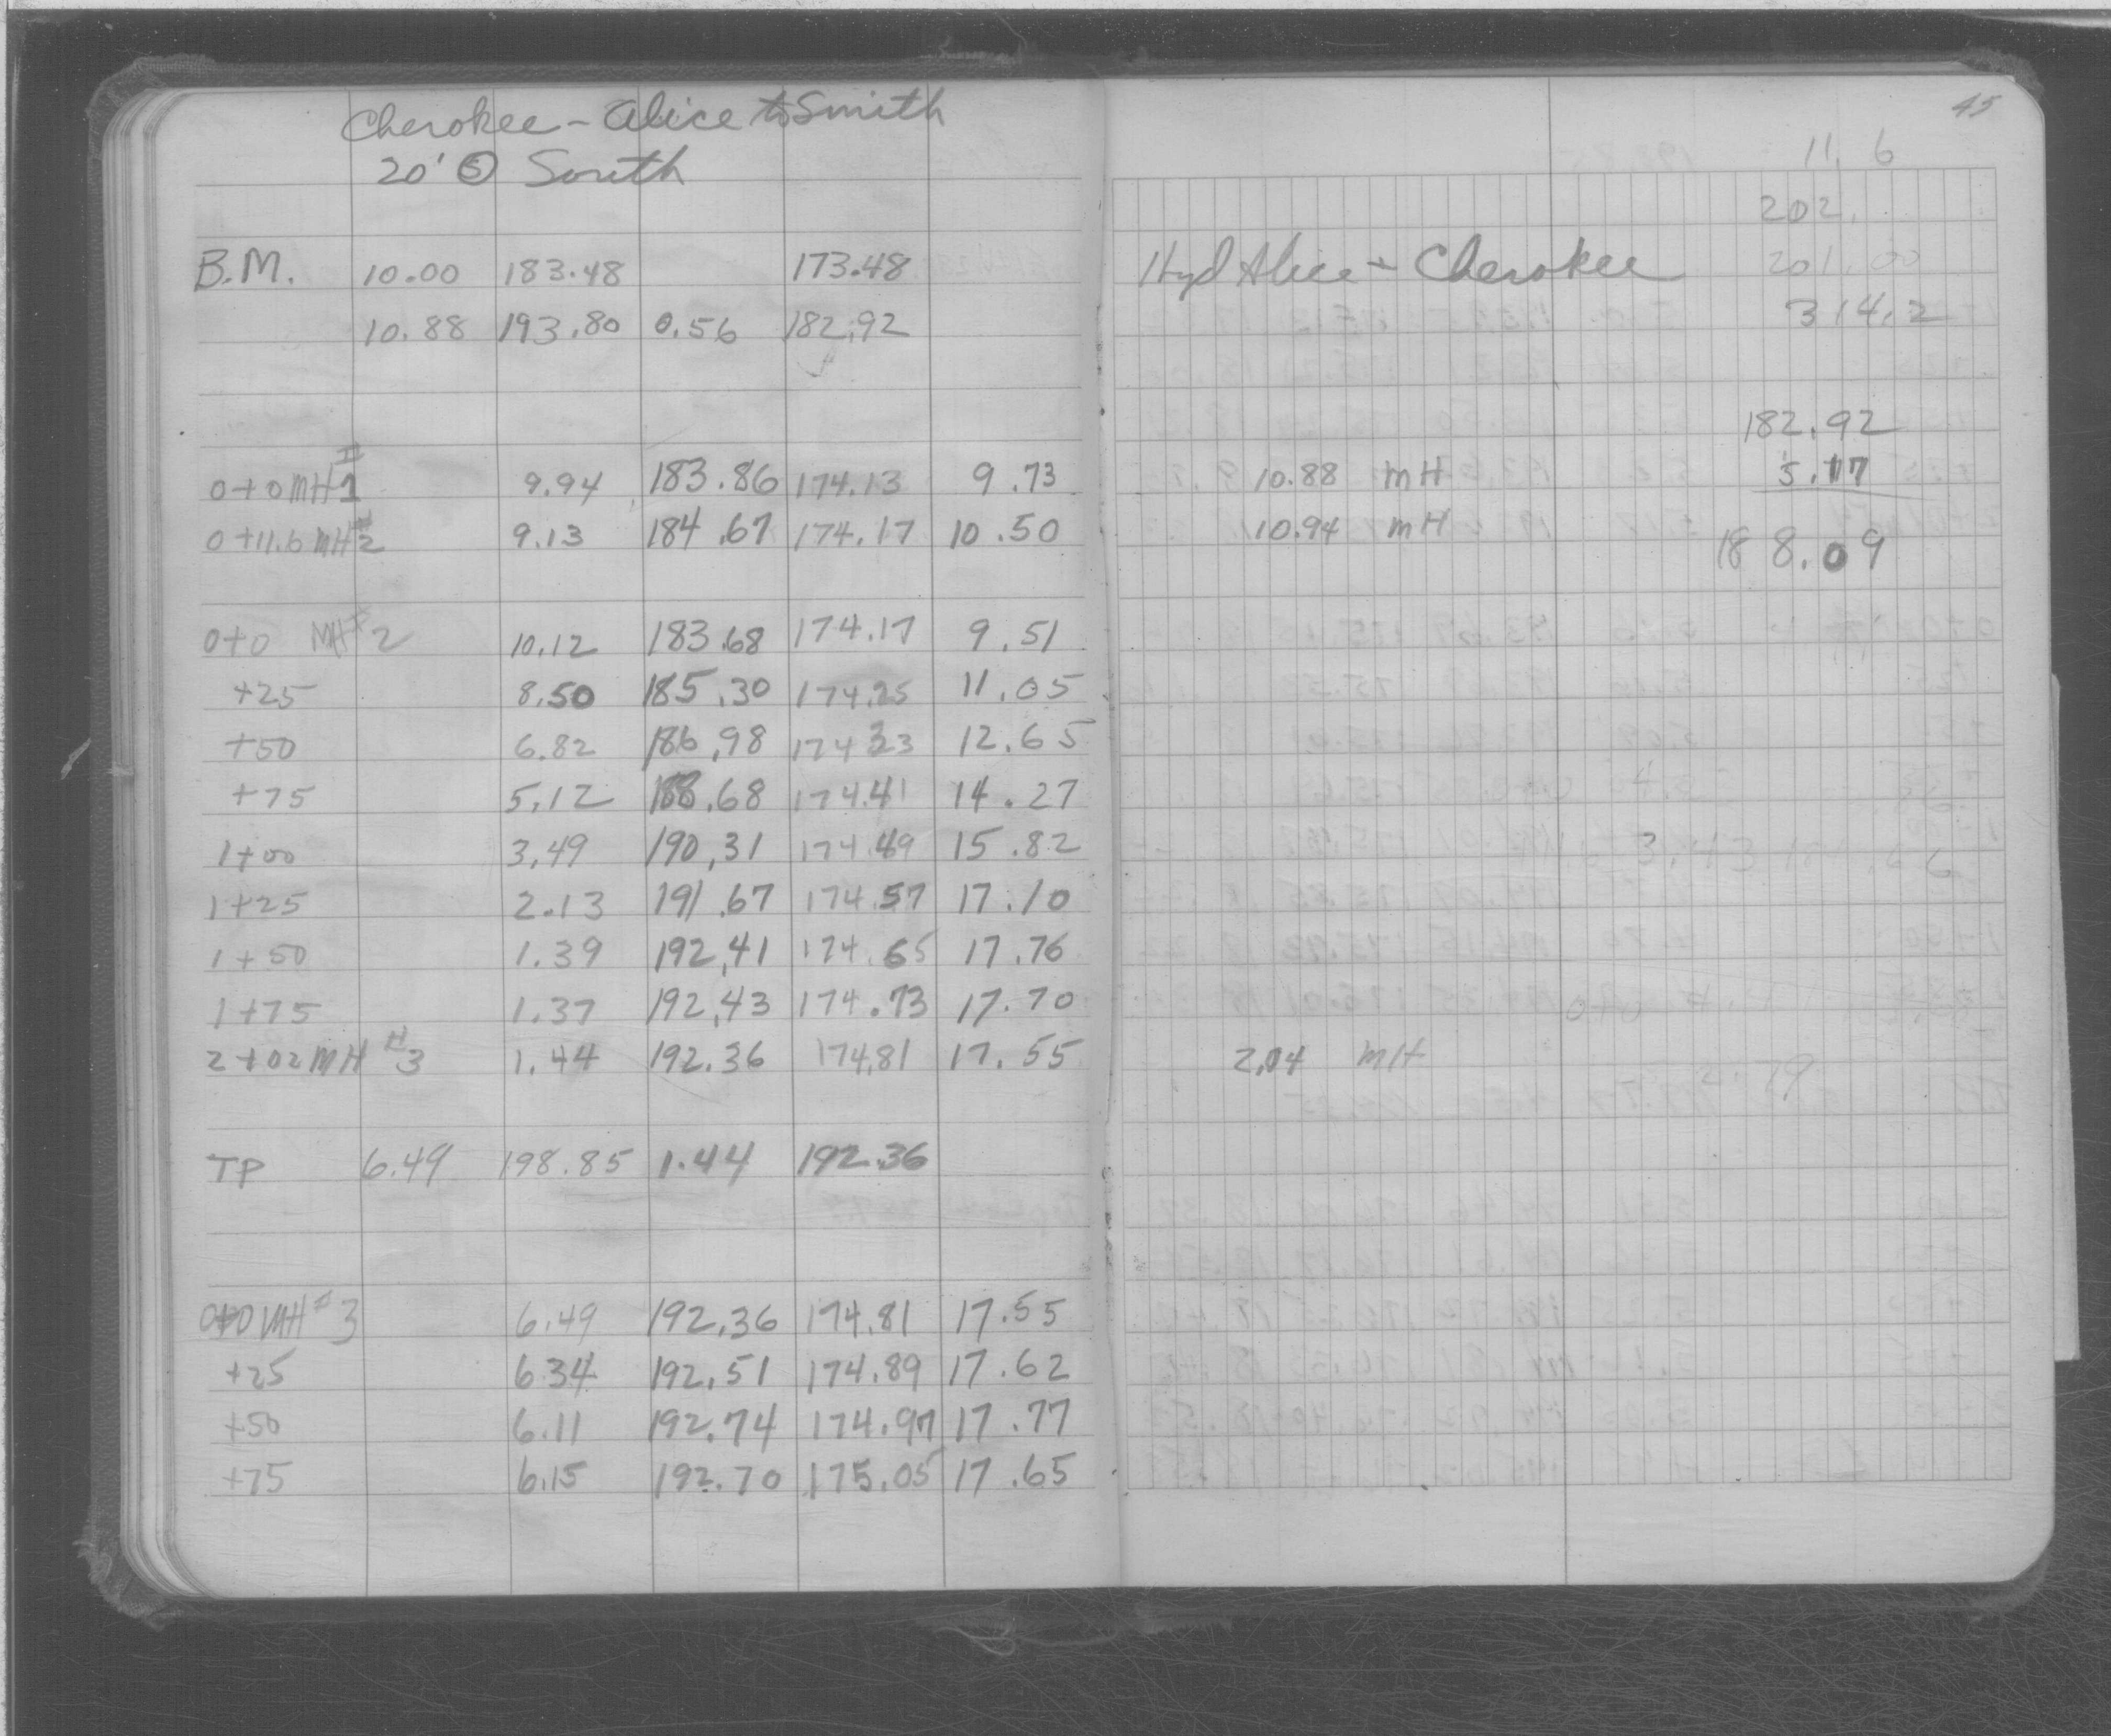 Cherokee - Alice to Smith
20' Ⓢ South
B.M. 10.00 183.48 173.48
10.88 193.80 0.56 182.92
0+0 MH #1 9.94 183.86 174.13 9.73
0+11.6 MH #2 9.13 184.67 174.17 10.50
0+0 MH #2 10.12 183.68 174.17 9.51
+25 8.50 185.30 174.25 11.05
+50 6.82 186.98 174.33 12.65
+75 5.12 188.68 174.41 14.27
1+00 3.49 190.31 174.49 15.82
1+25 2.13 191.67 174.57 17.10
1+50 1.39 192.41 174.65 17.76
1+75 1.37 192.43 174.73 17.70
2+02 MH #3 1.44 192.36 174.81 17.55
TP 6.49 198.85 1.44 192.36
0+0 MH #3 6.49 192.36 174.81 17.55
+25 6.34 192.51 174.89 17.62
+50 6.11 192.74 174.97 17.77
+75 6.15 192.70 175.05 17.65
45
11.6
202.
Hyd Alice + Cherokee 201.00
314.2
182.92
10.88 MH 5.17
10.94 MH
188.09
2.04 MH